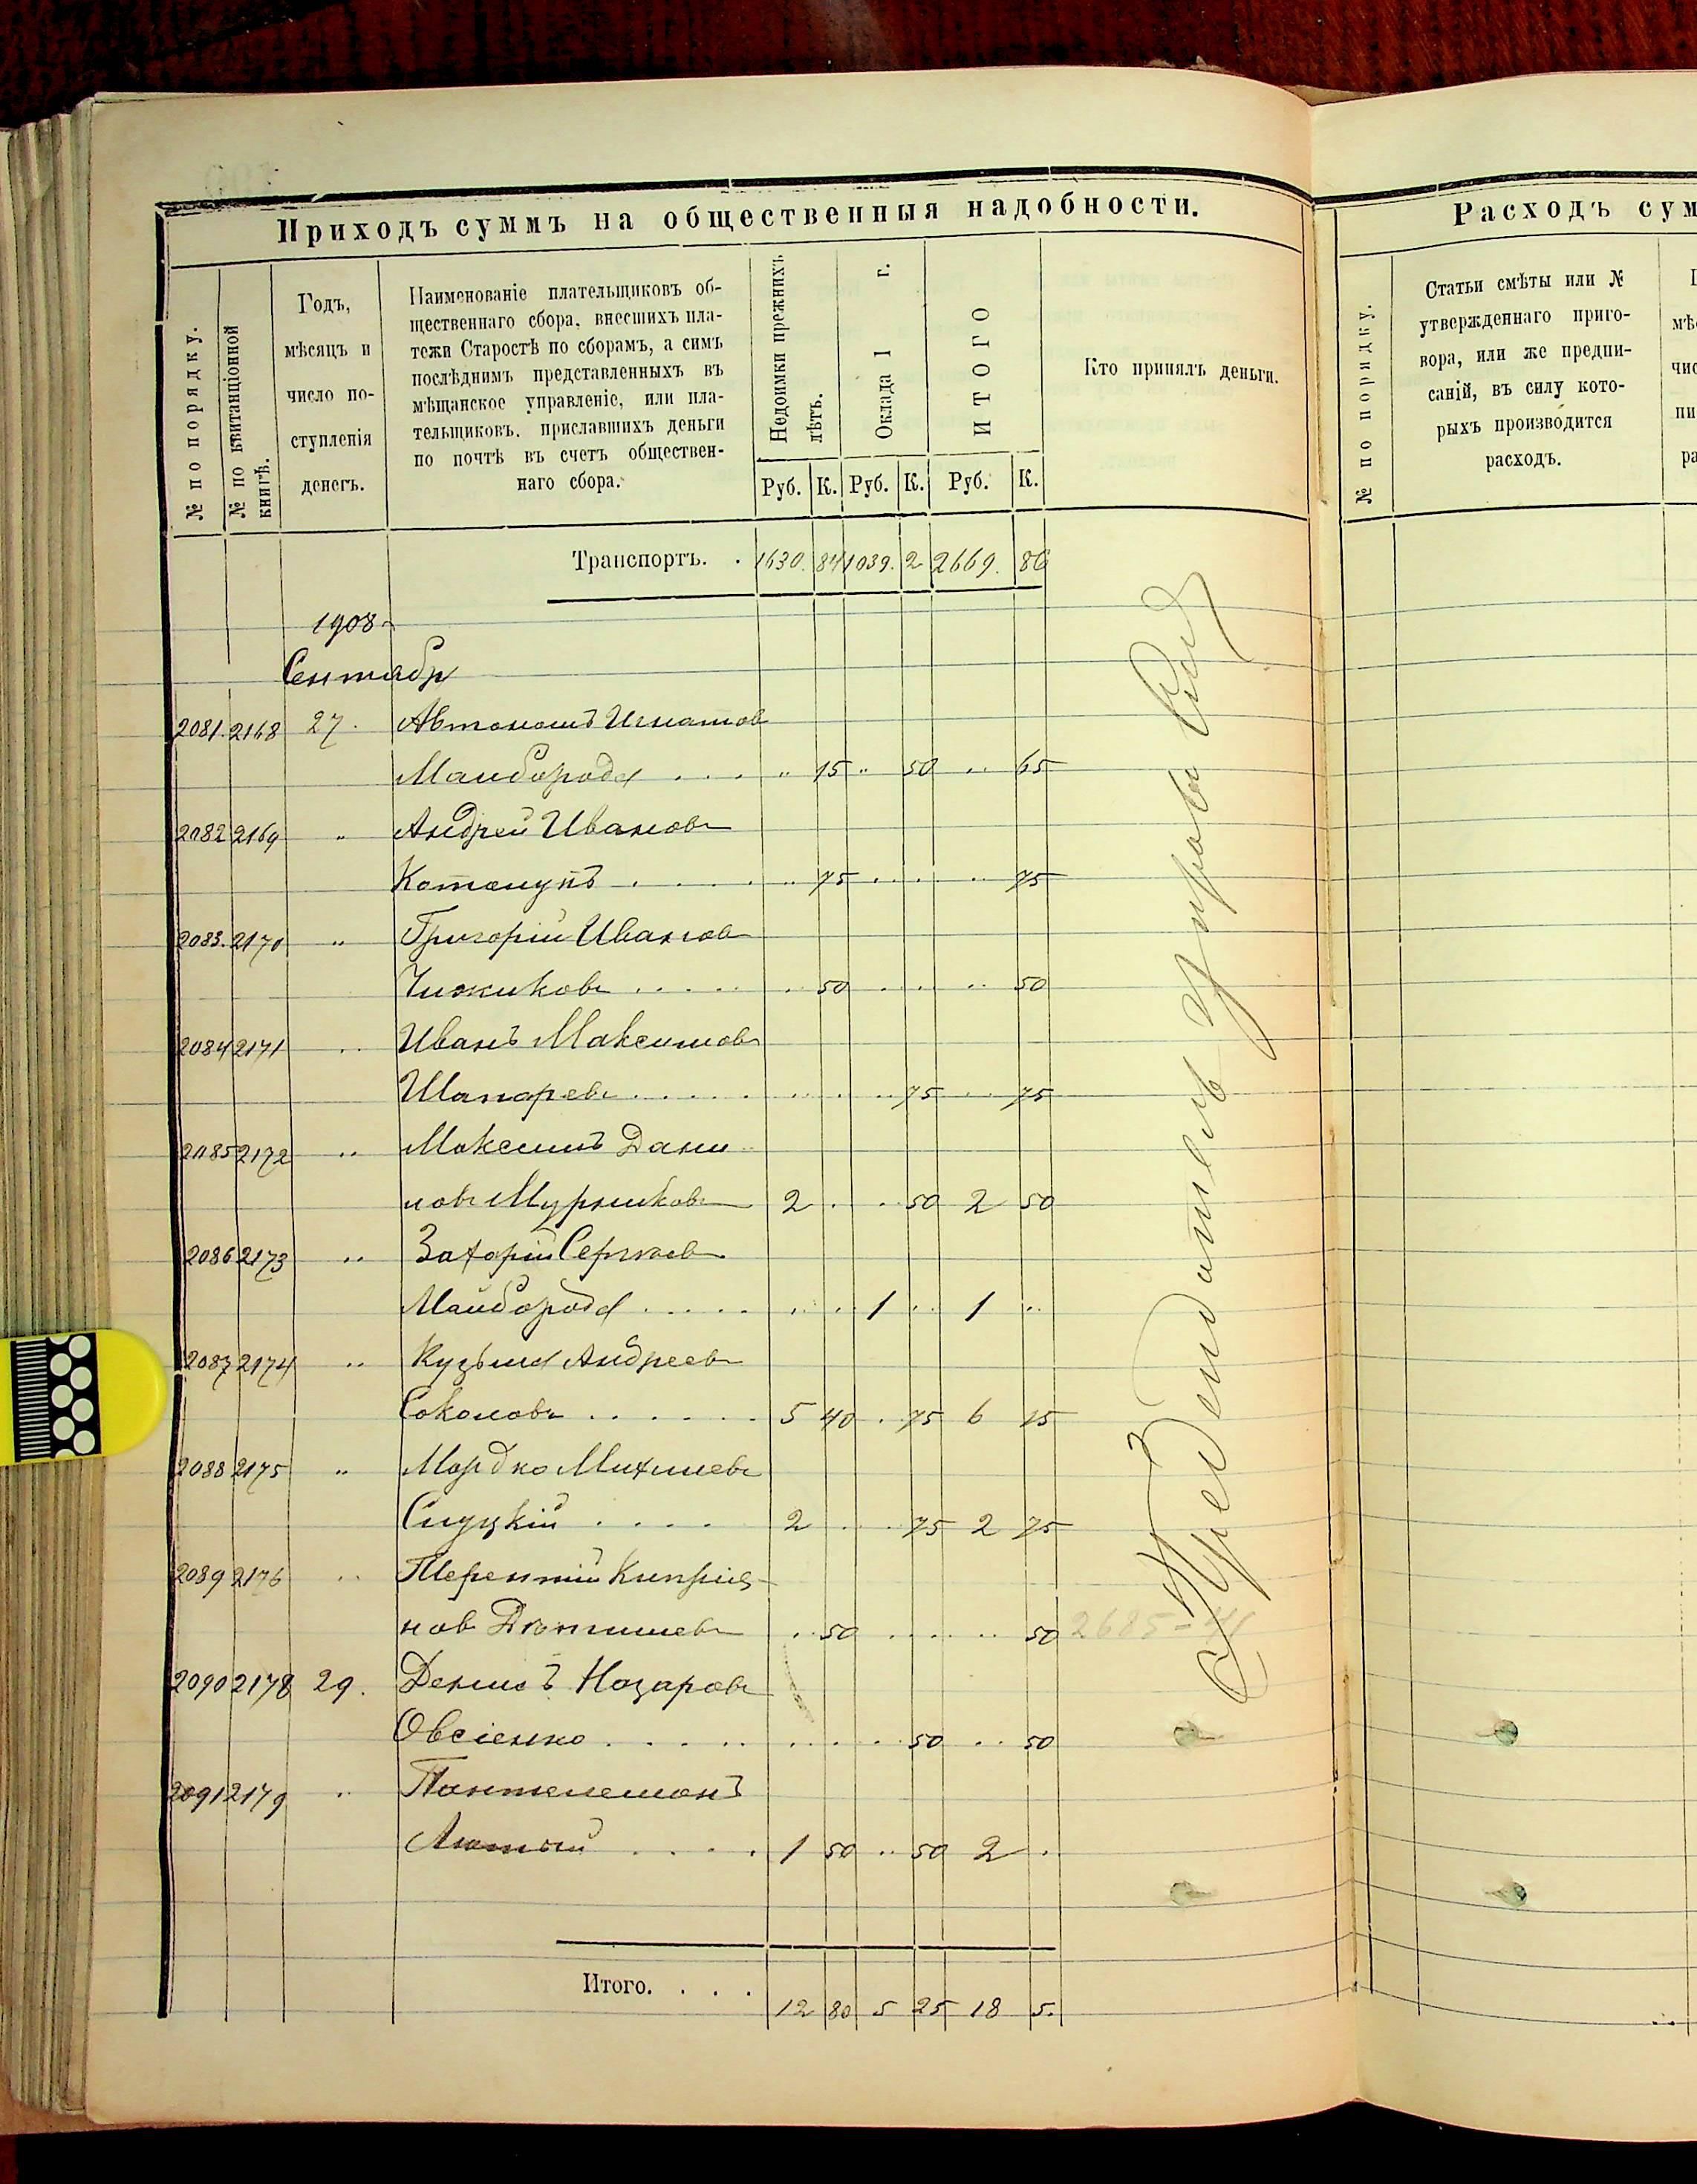 Приходъ суммъ на общественныя надобности.
№ по порядку.
№ по квитанціонной книгѣ.
Годъ, мѣсяцъ и число поступленія денегъ.
Наименованіе плательщиковъ об-
щественнаго сбора, внесшихъ пла-
тежи Старостѣ по сборамъ, а симъ
послѣднимъ представленныхъ въ
мѣщанское управленіе, или пла-
тельщиковъ, приславшихъ деньги
по почтѣ въ счетъ обществен-
наго сбора.
Недоимки прежнихъ лѣтъ.
Оклада 1 г.
ИТОГО
Кто принялъ деньги.
Руб. К. Руб. К. Руб. К.
Транспортъ. . 1630. 84 1039. 2 2669. 86
1908
Сентябр
2081. 2168 27. Автономъ Игнатов
Майборода . . . . „ 15 „ 50 „ 65
2082 2169 „ Андрей Иванов
75 75
2083. 2170 „ Григорій Иванов
Чижиков . . . . . 50 . . . „ 50
2084 2171 „ Иванъ Максимов
Шапарев . . . . . 75 . . 75
2085 2172 „ Максимъ Дани
лов Мурзиков 2 . . 50 2 50
2086 2173 „ Захарій Сергѣев
Майборода . . . . . 1 . . 1 „
2087 2174 „ Кузьма Андреев
Соколов . . . . . . 5 40 . 75 6 15
2088 2175 „ Мордко Михелев
Слуцкій . . . . 2 . . 75 2 75
2089 2176 „ Терентій Киприя-
нов . . 50 . . . . 50
2685-41
2090 2178 29. Денисъ Назаров
Овсіенко . . . . . 50 . . 50
2091 2179 „ Пантелемонъ
Лютый . . . . 1 50 „ 50 2 .
Итого. . . . 12 80 5 25 18 5.
Расходъ сум
№ по порядку.
Статьи смѣты или №
утвержденнаго приго-
вора, или же предпи-
саній, въ силу кото-
рыхъ производится
расходъ.